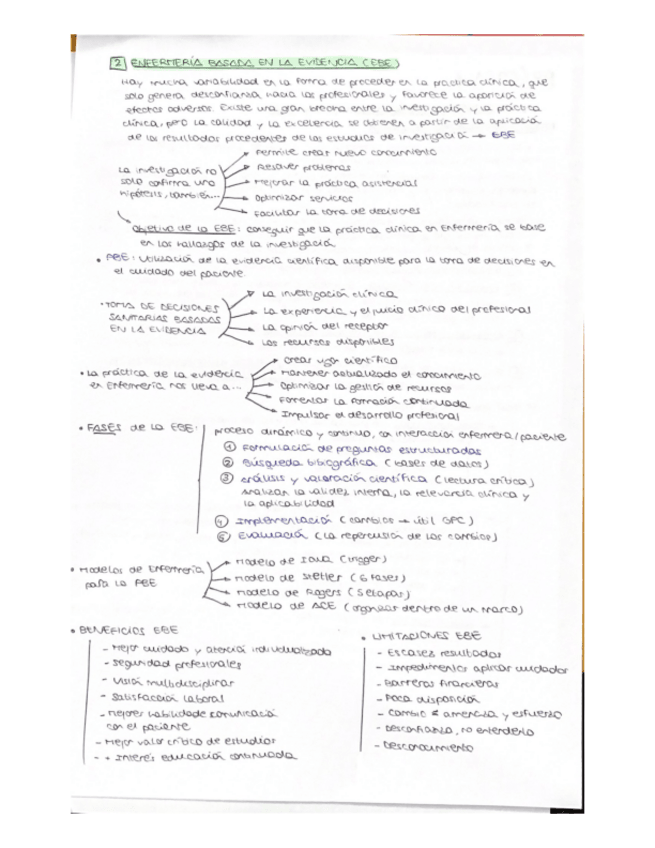 2 ENFERMERÍA BASADA EN LA EVIDENCIA (EBE)
Hay mucha variabilidad en la forma de proceder en la práctica clínica, que
solo genera desconfianza hacia los profesionales y favorece la aparición de
efectos adversos. Existe una gran brecha entre la investigación y la práctica
clínica, pero la calidad y la excelencia se obtienen a partir de la aplicación
de los resultados procedentes de los estudios de investigación → EBE
La investigación no
solo confirma una
hipótesis, también...
Permite crear nuevo conocimiento
Resolver problemas
Mejorar la práctica asistencial
Optimizar servicios
Facilitar la toma de decisiones
Objetivo de la EBE: conseguir que la práctica clínica en Enfermería se base
en los hallazgos de la investigación
• PBE: Utilización de la evidencia científica disponible para la toma de decisiones en
el cuidado del paciente
• TOMA DE DECISIONES
SANITARIAS BASADAS
EN LA EVIDENCIA
La investigación clínica
La experiencia y el juicio clínico del profesional
La opinión del receptor
Los recursos disponibles
• La práctica de la evidencia
en Enfermería nos lleva a...
Crear rigor científico
Mantener actualizado el conocimiento
Optimizar la gestión de recursos
Fomentar la formación continuada
Impulsar el desarrollo profesional
• FASES de la EBE:
proceso dinámico y continuo, con interacción enfermera/paciente
1 Formulación de preguntas estructuradas
2 Búsqueda bibliográfica (bases de datos)
3 Análisis y valoración científica (lectura crítica)
Analizan la validez interna, la relevancia clínica y
la aplicabilidad
4 Implementación (cambios → útil GPC)
5 Evaluación (la repercusión de los cambios)
• Modelos de Enfermería
para la PBE
Modelo de Iowa (trigger)
Modelo de Stetler (6 fases)
Modelo de Rogers (5 etapas)
Modelo de ACE (organizar dentro de un marco)
• BENEFICIOS EBE
- Mejor cuidado y atención individualizada
- Seguridad profesionales
- Visión multidisciplinar
- Satisfacción laboral
- Mejores habilidade comunicació
con el paciente
- Mejor valor crítico de estudios
- + Interés educación continuada
• LIMITACIONES EBE
- Escasez resultados
- Impedimentos aplicar cuidados
- Barreras financieras
- Poca disposición
- Cambio = amenaza y esfuerzo
- Desconfianza, no entenderlo
- Desconocimiento